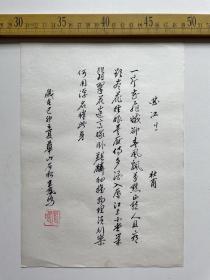 30 40 50
曲江
杜甫
一片花飛減卻春風飄萬點正愁人且看
欲盡花經眼莫厭傷多酒入唇江上小堂巢
翡翠苑邊高塚臥麒麟細推物理須行樂
何用浮名絆此身
歲在己卯之夏華山